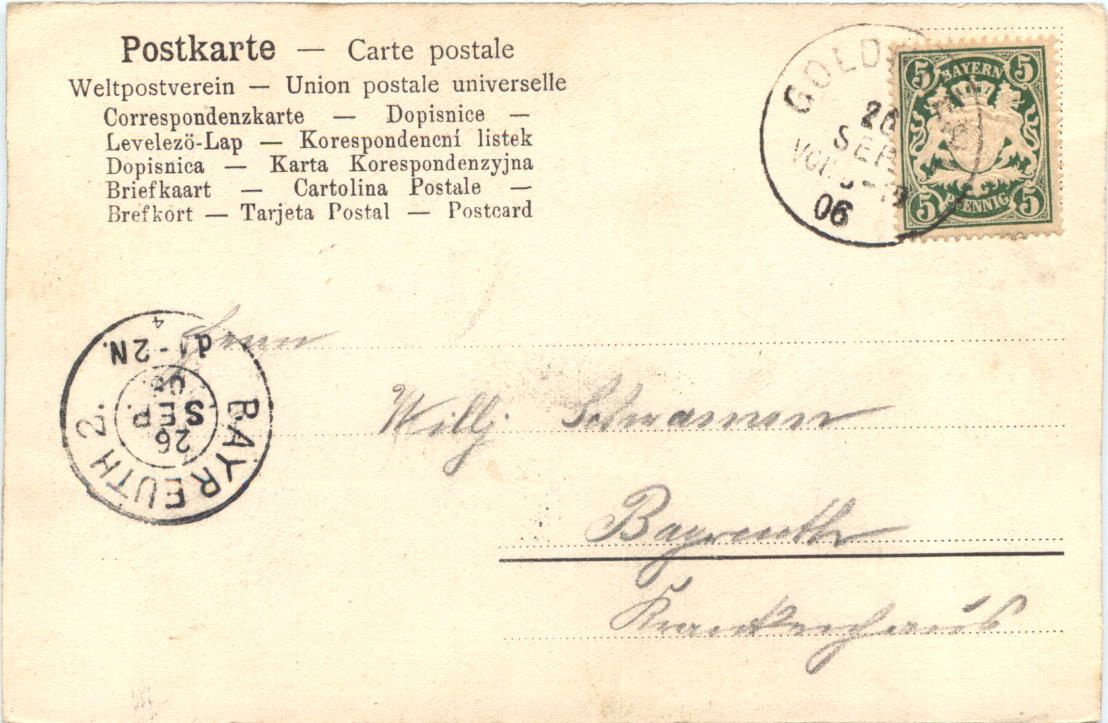 Postkarte — Carte postale
Weltpostverein — Union postale universelle
Correspondenzkarte — Dopisnice —
Levelező-Lap — Korespondencní listek
Dopisnica — Karta Korespondenzyjna
Briefkaart — Cartolina Postale —
Brefkort — Tarjeta Postal — Postcard
GOLD
26
SEP
VOR.
06
5 BAYERN 5
5 PFENNIG 5
BAYREUTH 2.
26
SEP.
06
1-2N.
4
Herrn
Willy
Bayreuth
Krankenhaus